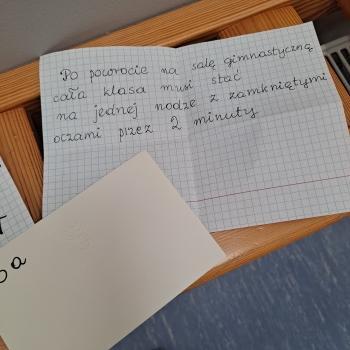 Po powrocie na salę gimnastyczną
cała klasa musi stać
na jednej nodze z zamkniętymi
oczami przez 2 minuty